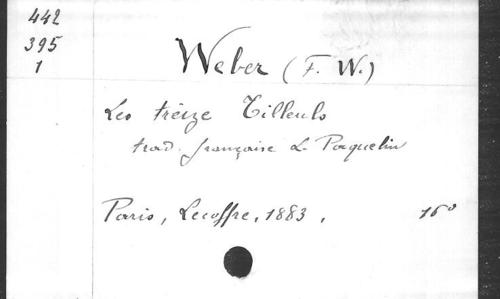 442
395
1
Weber (F. W.)
Les treize Tilleuls
trad. française L. Paquelin
Paris, Lecoffre, 1883, 16°